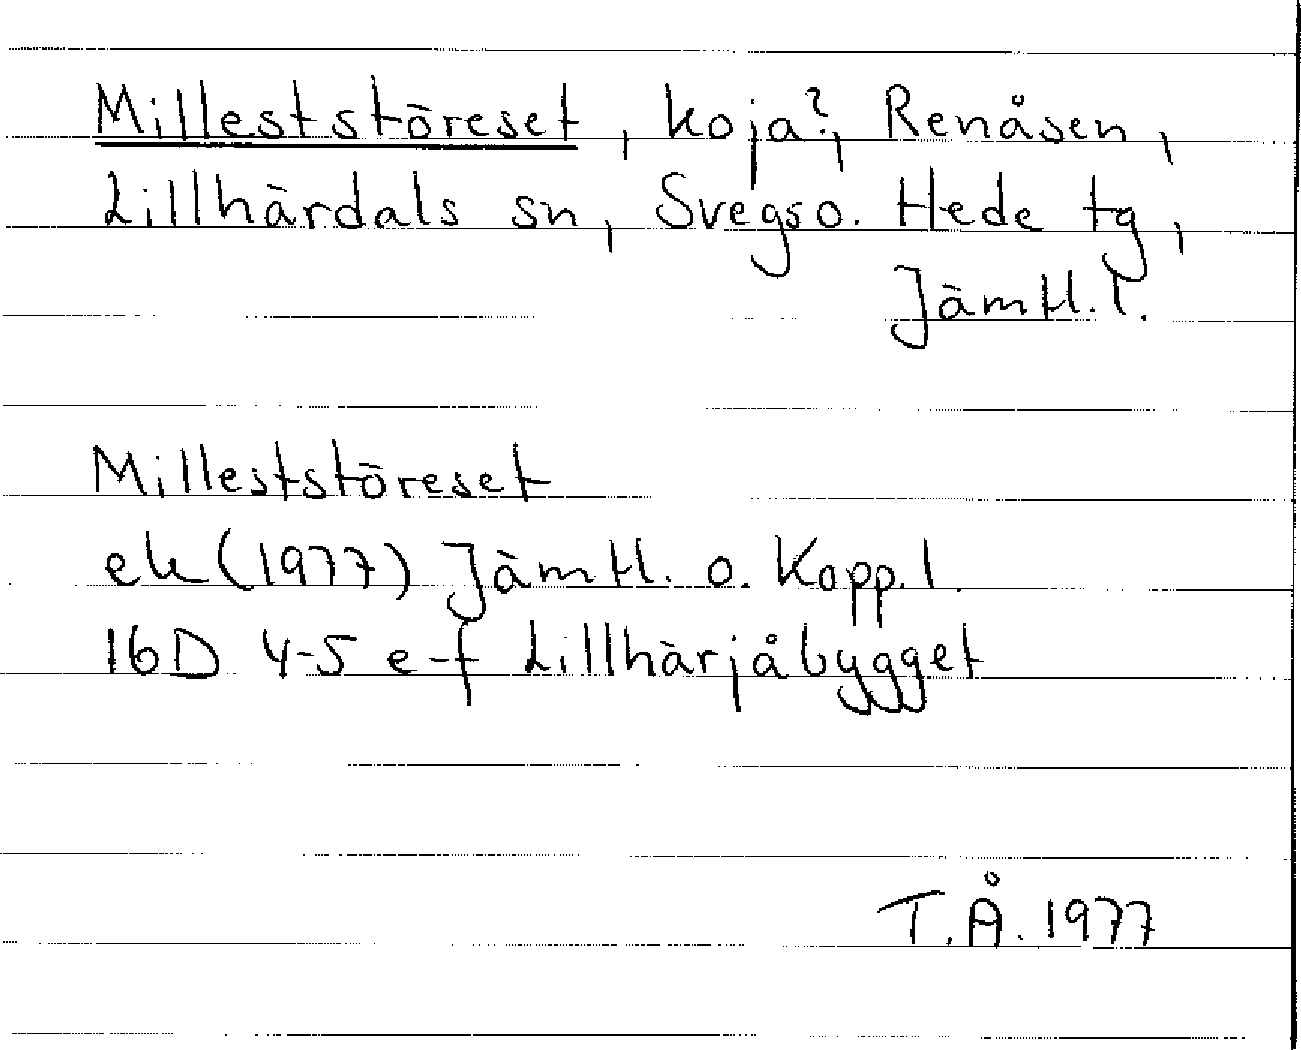 Milleststöreset, koja?, Renåsen,
Lillhärdals sn, Svegs o. Hede tg,
Jämtl. l.
Milleststöreset
ek (1977) Jämtl. o. Kopp. l.
16D 4-5 e-f Lillhärjåbygget
T.Å. 1977